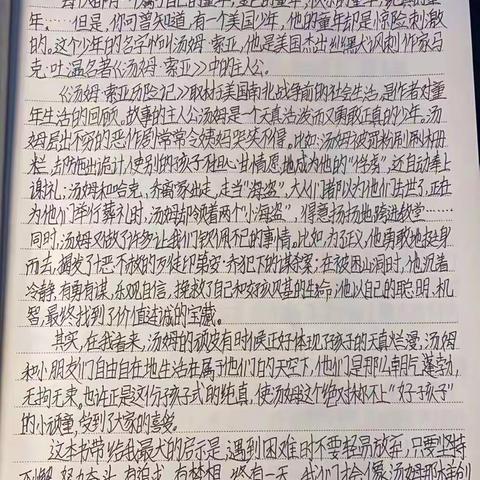 年。……但是,你可曾知道,有一个美国少年,他的童年却是惊险刺激
的。这个少年的名字叫汤姆·索亚,他是美国杰出幽默讽刺作家马
克·吐温名著《汤姆·索亚》中的主人公。
《汤姆·索亚历险记》取材于美国南北战争前的社会生活,是作者对童
年生活的回顾。故事的主人公汤姆是一个天真活泼而又勇敢正直的少年。汤
姆层出不穷的恶作剧常常令姨妈哭笑不得。比如:汤姆被罚粉刷刷栅
栏,却施出诡计,使别的孩子甘心甘情愿地成为他的“俘虏”,还自动奉上
谢礼;汤姆和哈克、乔离家出走,走当“海盗”,大人们都以为他们去世了,正在
为他们举行葬礼时,汤姆却领着两个“小海盗”,得意扬扬地跨进教堂……
同时,汤姆又做了许多让我们钦佩不已的事情。比如,为了正义,他勇敢地挺身
而出,揭发了十恶不赦的歹徒印第安·乔犯下的谋杀案;在被困山洞时,他沉着
冷静,有勇有谋,乐观自信,拯救了自己和女孩贝基的生命;他以自己的聪明、机
智,最终找到了价值连城的宝藏。
其实,在我看来,汤姆的顽皮有时候正好体现了孩子的天真烂漫;汤姆
和小朋友们自由自在地生活在属于他们的天空下,他们是那么朝气蓬勃,
无拘无束。也许正是这份孩子式的纯真,使汤姆这个绝对称不上“好孩子”
的小顽童,受到了大家的喜爱。
这本书带给我最大的启示是:遇到困难时不要轻易放弃,只要坚持
不懈,努力奋斗,有追求,有梦想,终有一天,我们才会像汤姆那样